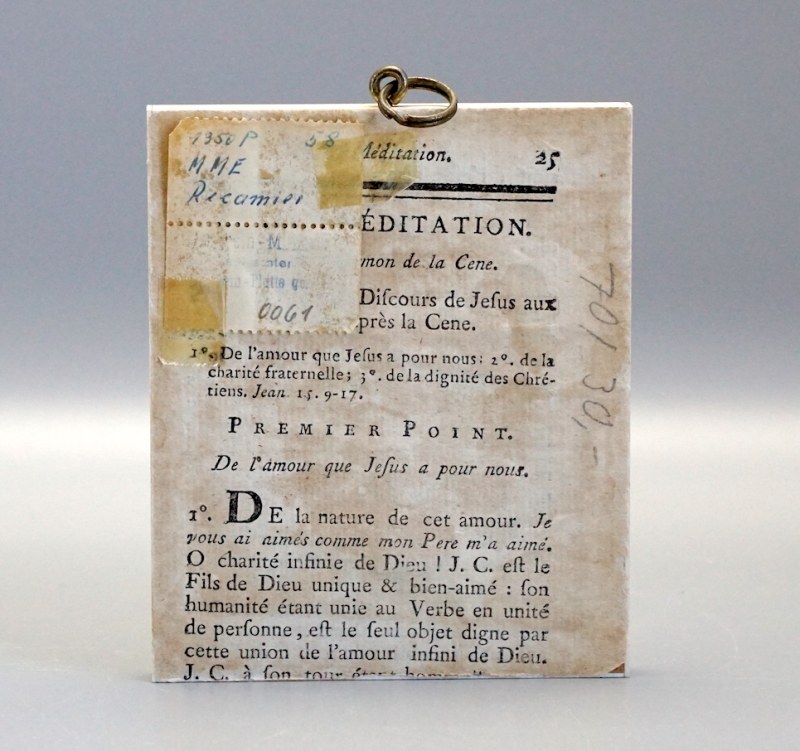 1350 P 58
MME
Récamier
0061
Méditation. 25
ÉDITATION.
mon de la Cene.
Diſcours de Jeſus aux
près la Cene.
1º. De l'amour que Jeſus a pour nous: 2º. de la
charité fraternelle; 3º. de la dignité des Chré-
tiens. Jean 15. 9-17.
PREMIER POINT.
De l'amour que Jeſus a pour nous.
1º. DE la nature de cet amour. Je
vous ai aimés comme mon Pere m'a aimé.
O charité infinie de Dieu ! J. C. eſt le
Fils de Dieu unique & bien-aimé : ſon
humanité étant unie au Verbe en unité
de perſonne, eſt le ſeul objet digne par
cette union de l'amour infini de Dieu.
J. C. à ſon tour étant
70/30,-